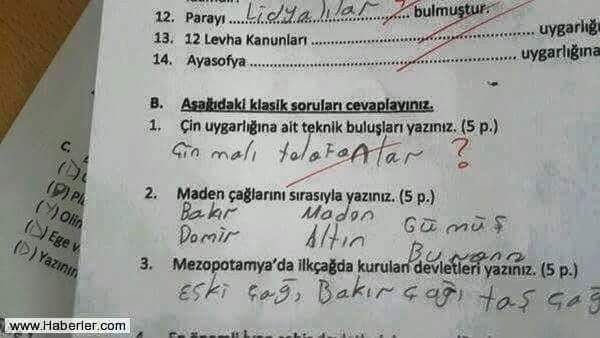 12. Parayı Lidyalılar bulmuştur.
13. 12 Levha Kanunları ........ uygarlığı
14. Ayasofya ........ uygarlığına
B. Aşağıdaki klasik soruları cevaplayınız.
1. Çin uygarlığına ait teknik buluşları yazınız. (5 p.)
Çin malı telefonlar ?
2. Maden çağlarını sırasıyla yazınız. (5 p.)
Bakır Madon Gümüş
Domir Altın
3. Mezopotamya'da ilkçağda kurulan devletleri yazınız. (5 p.)
Eski çağ, Bakır çağı, taş çağ
C.
Ege v
(D) Yazının
www.Haberler.com